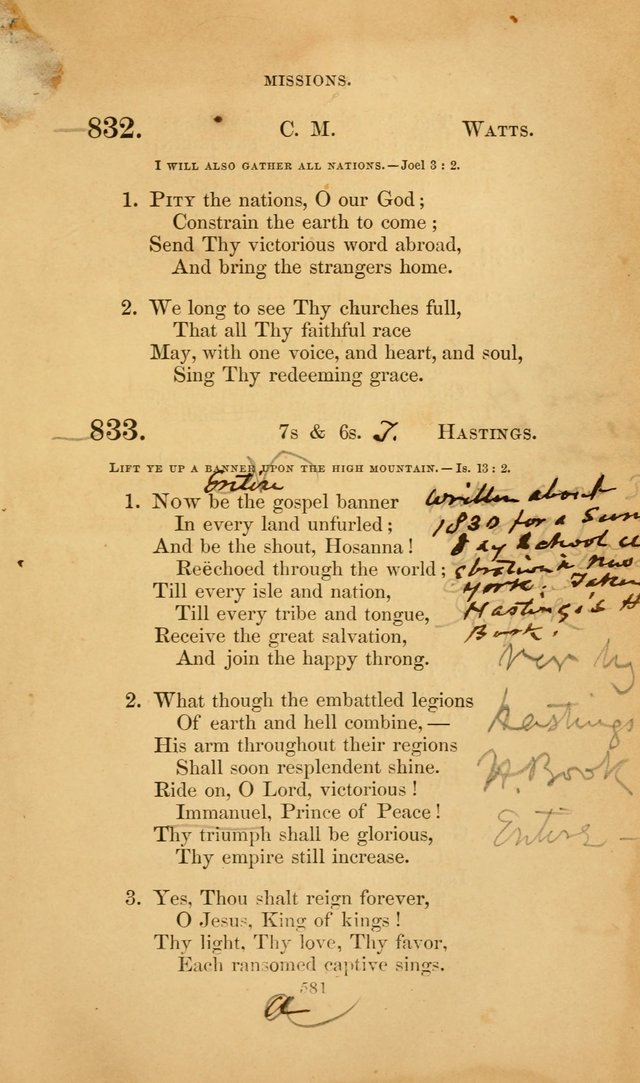 MISSIONS.
832. C. M. WATTS.
I WILL ALSO GATHER ALL NATIONS.—Joel 3 : 2.
1. PITY the nations, O our God;
Constrain the earth to come;
Send Thy victorious word abroad,
And bring the strangers home.
2. We long to see Thy churches full,
That all Thy faithful race
May, with one voice, and heart, and soul,
Sing Thy redeeming grace.
833. 7s & 6s. HASTINGS.
LIFT YE UP A BANNER UPON THE HIGH MOUNTAIN.—Is. 13 : 2.
Entire
1. Now be the gospel banner
In every land unfurled;
And be the shout, Hosanna!
Reëchoed through the world;
Till every isle and nation,
Till every tribe and tongue,
Receive the great salvation,
And join the happy throng.
written about
1830 for a Sun
day School
in New
York. Taken
Hasting's H
Book.
Hastings
H. Book
Entire —
2. What though the embattled legions
Of earth and hell combine,—
His arm throughout their regions
Shall soon resplendent shine.
Ride on, O Lord, victorious!
Immanuel, Prince of Peace!
Thy triumph shall be glorious,
Thy empire still increase.
3. Yes, Thou shalt reign forever,
O Jesus, King of kings!
Thy light, Thy love, Thy favor,
Each ransomed captive sings.
581
a